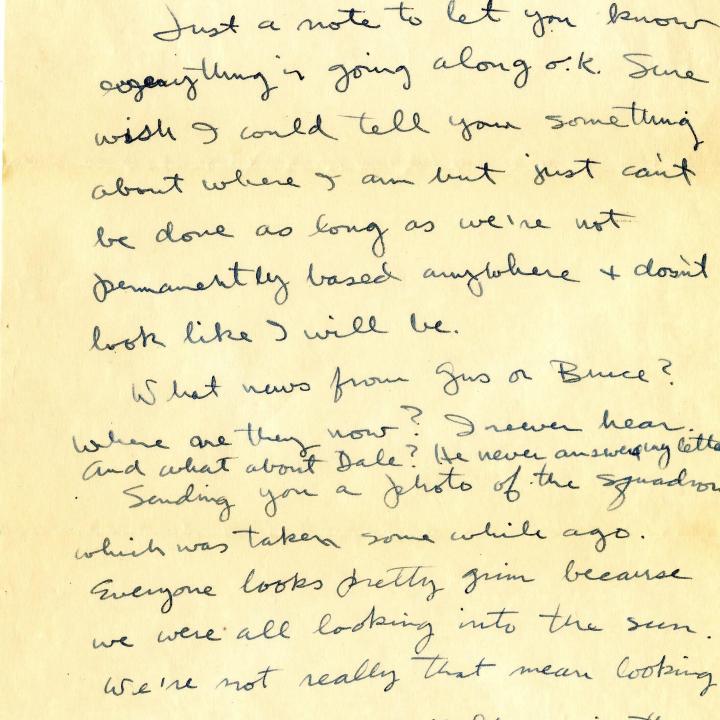 Just a note to let you know
everything is going along o.k. Sure
wish I could tell you something
about where I am but just can't
be done as long as we're not
permanently based anywhere + doesn't
look like I will be.
What news from Gus or Bruce?
Where are they now? I never hear.
And what about Dale? He never answered my letter
Sending you a photo of the squadron
which was taken some while ago.
Everyone looks pretty grim because
we were all looking into the sun.
We're not really that mean looking